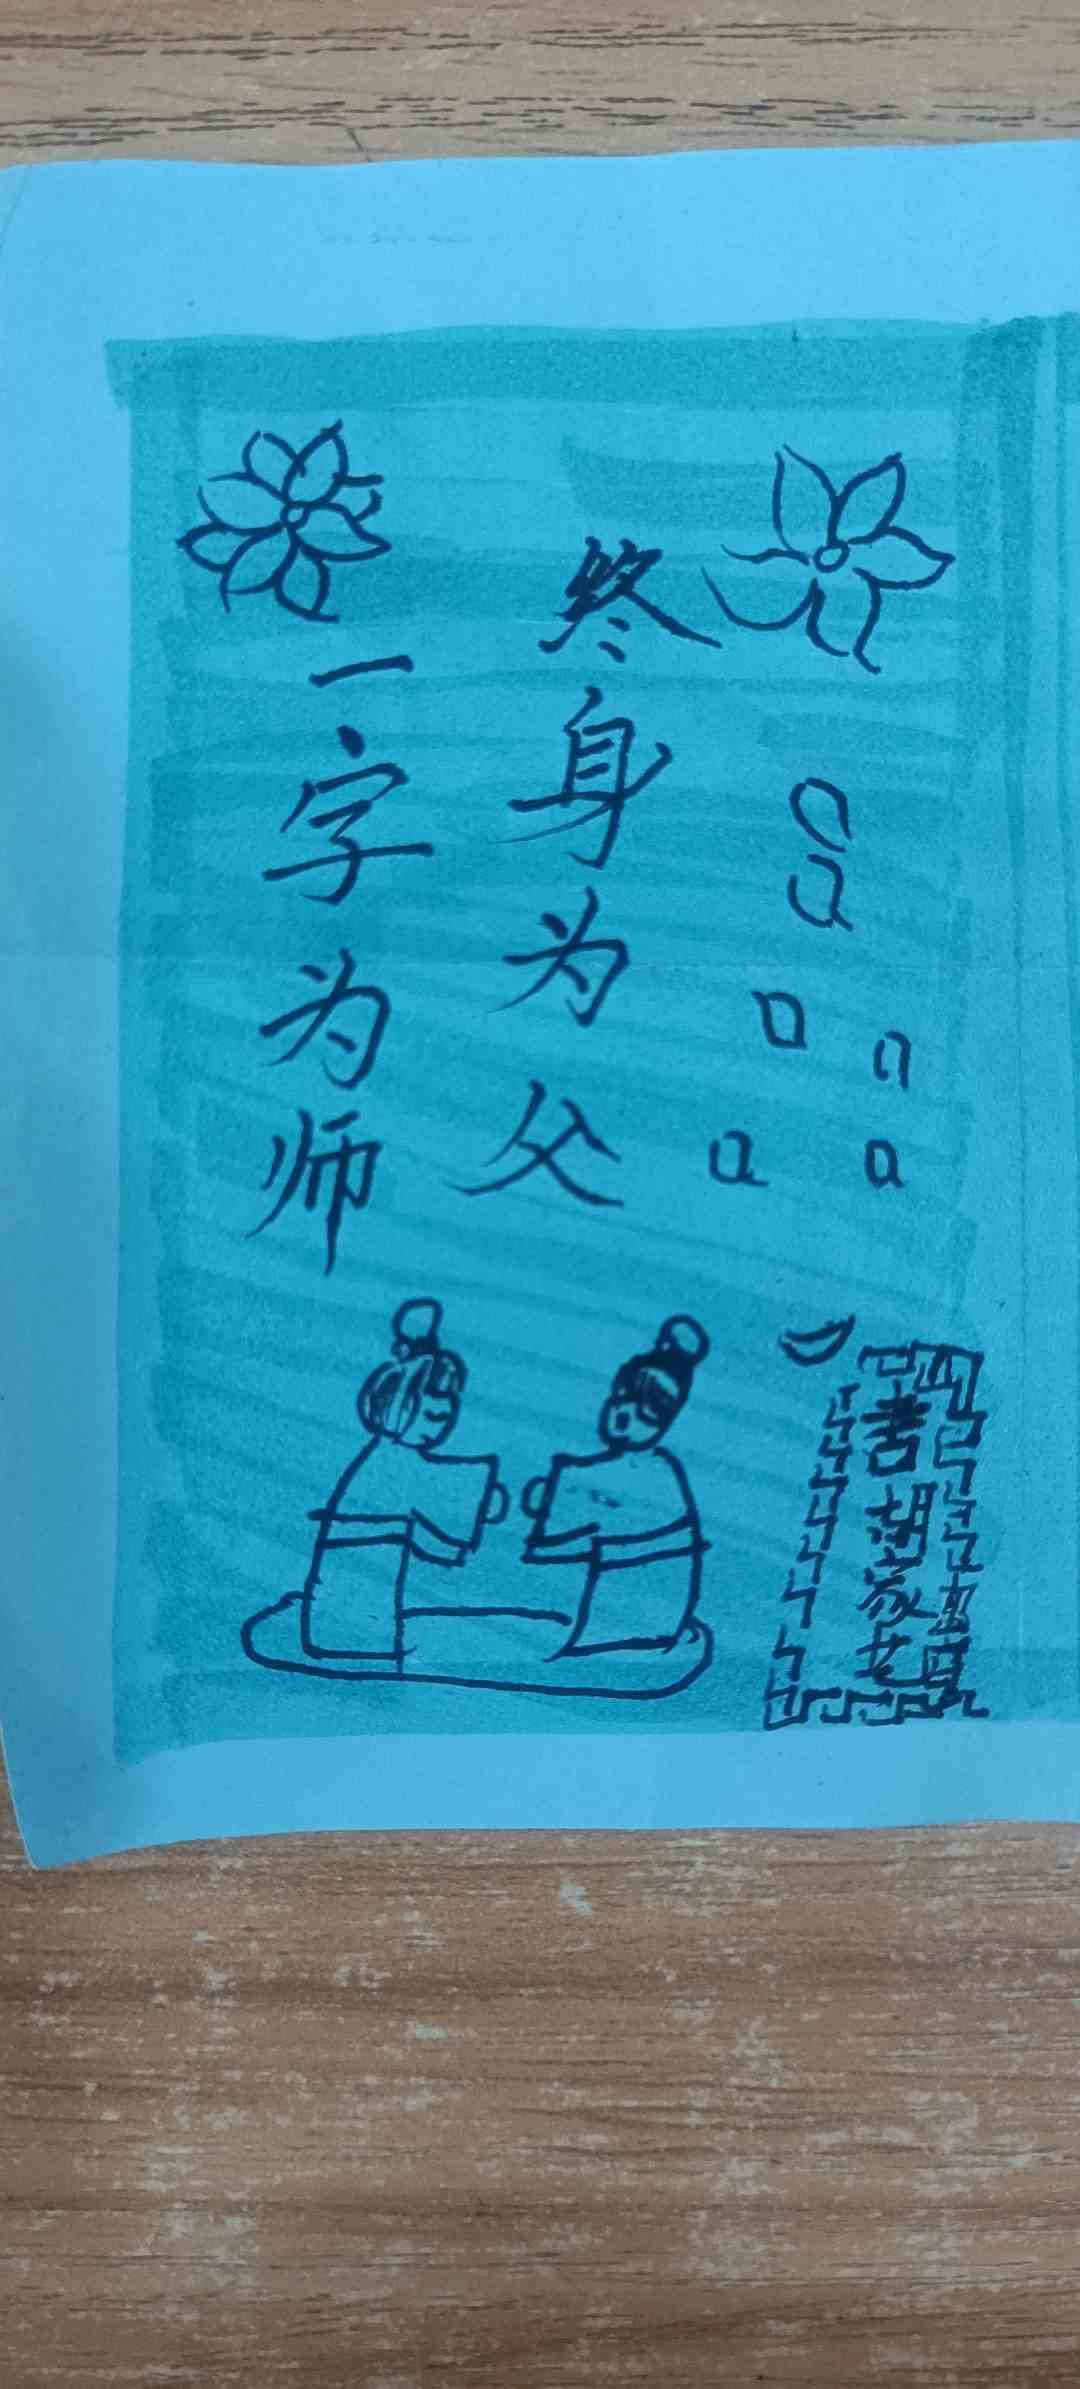 一字为师
终身为父
善胡家